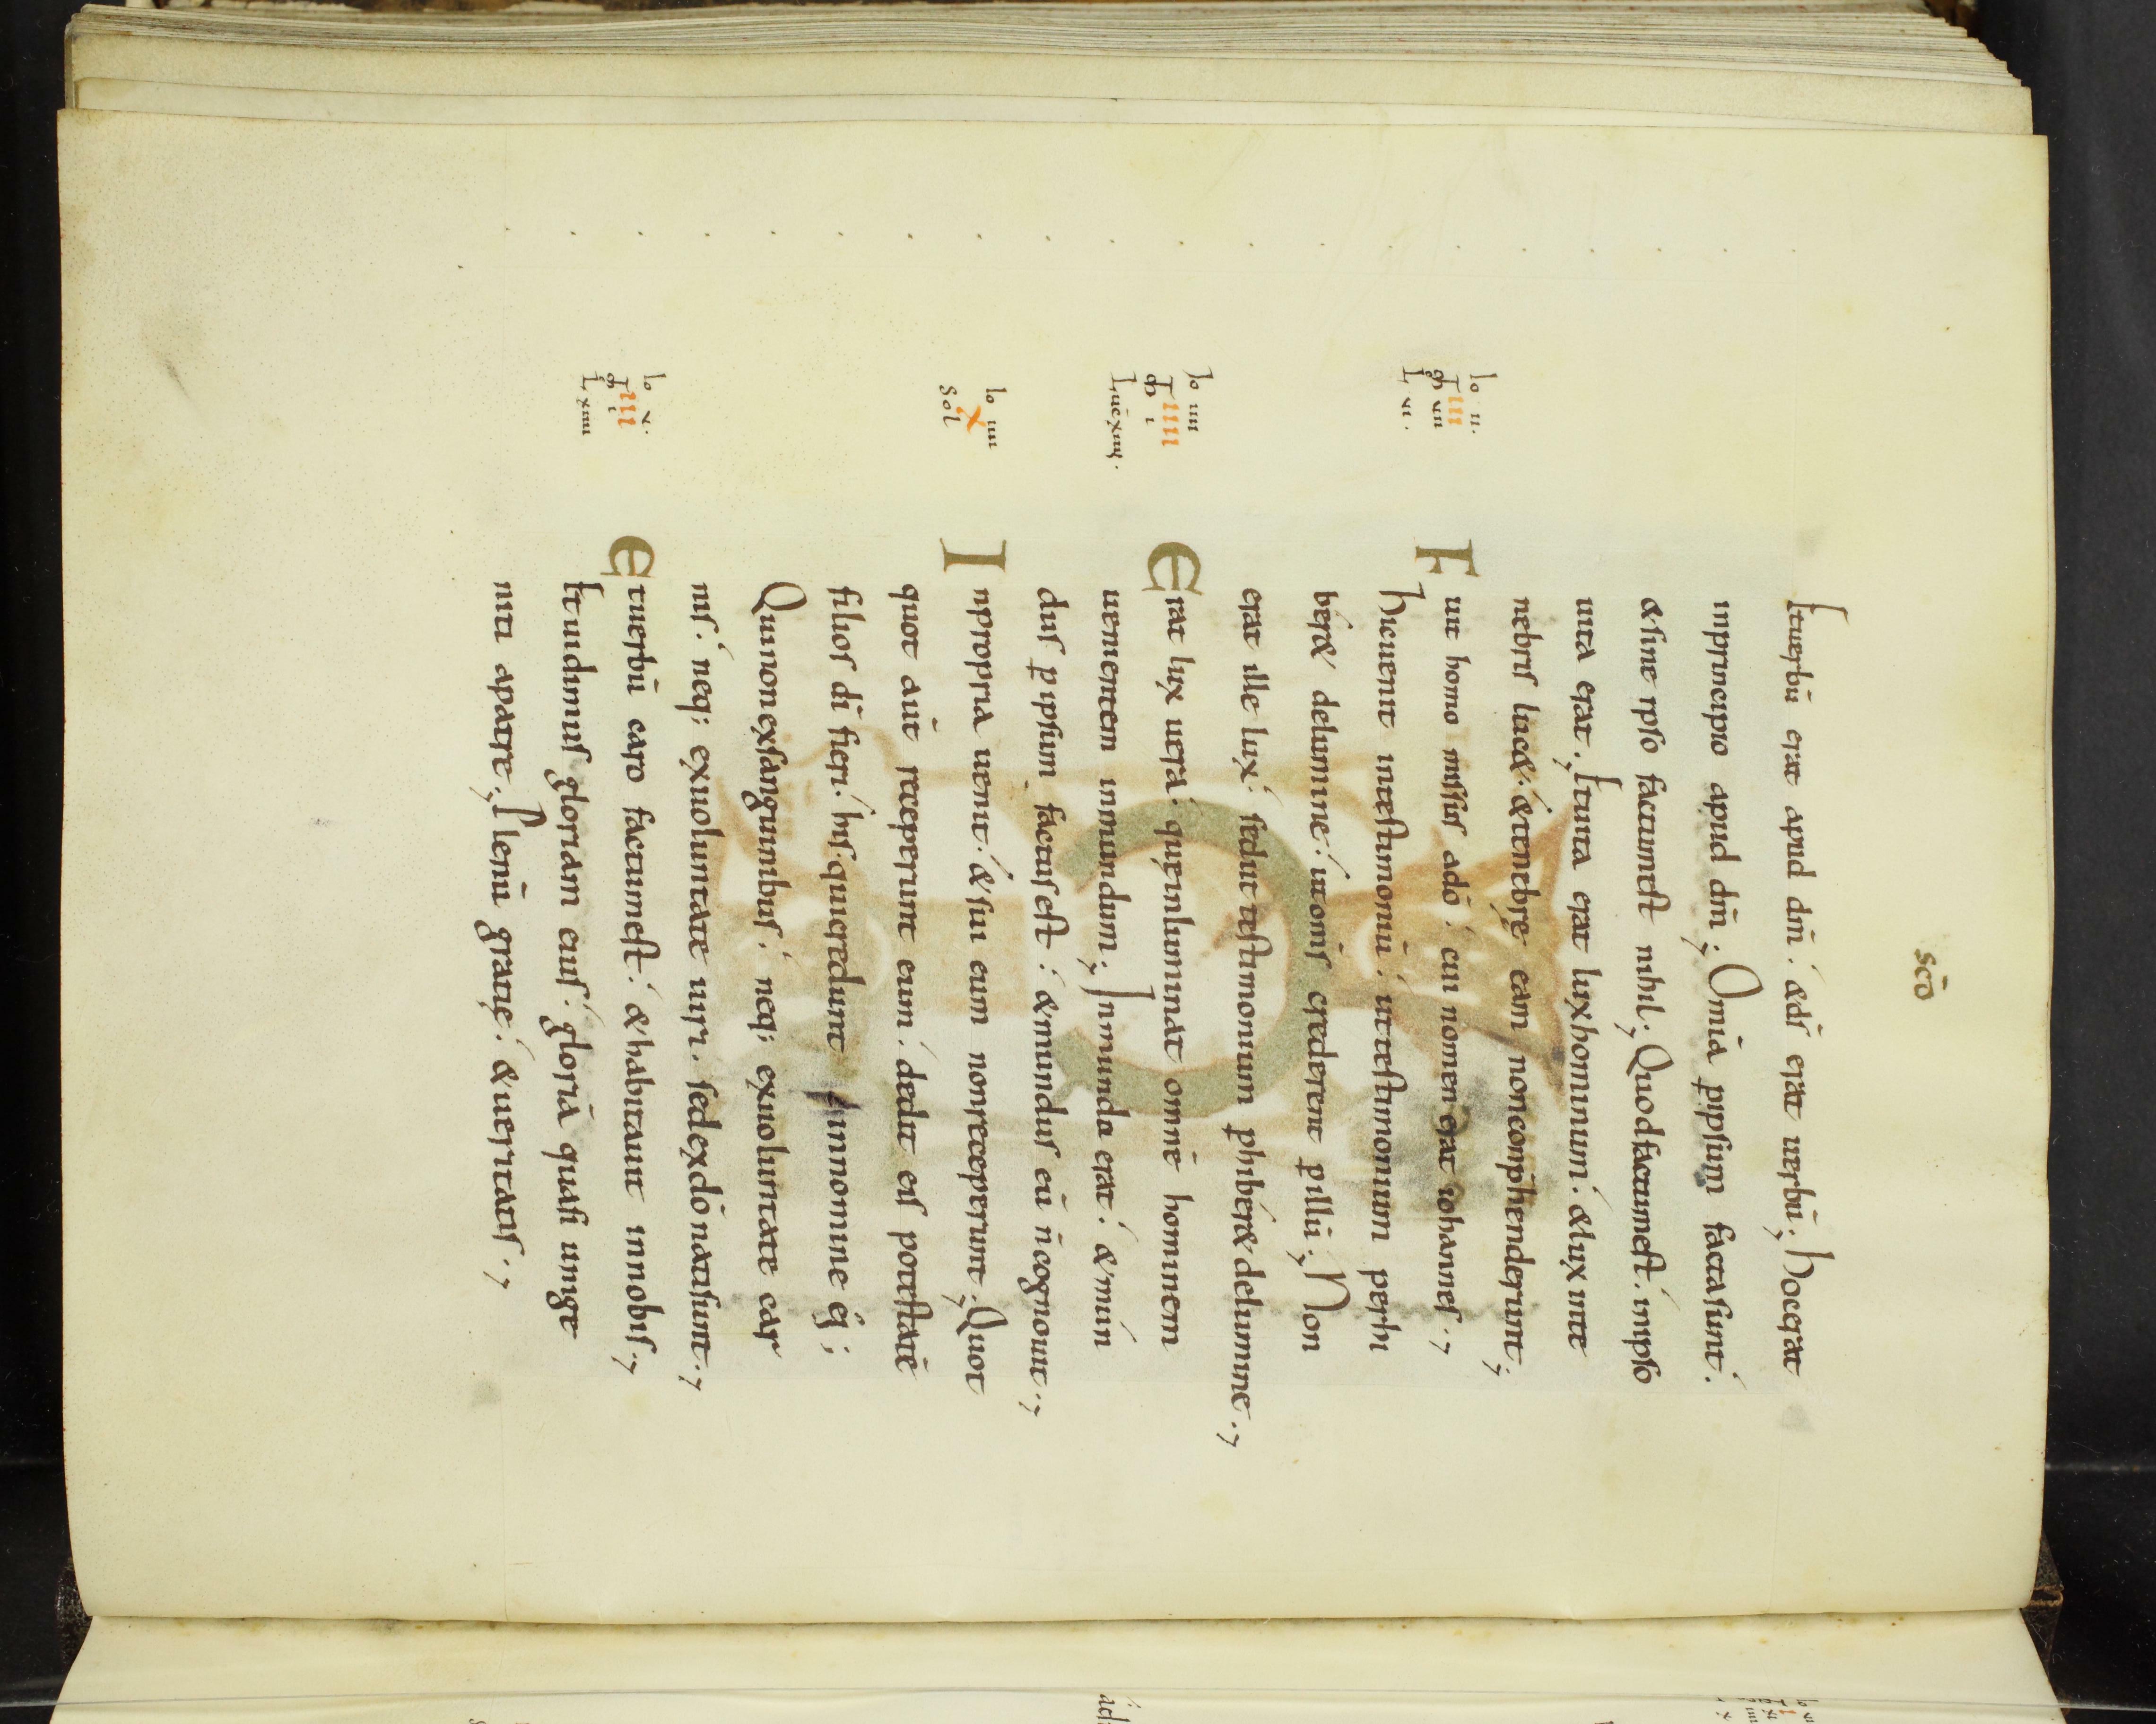 scd̄
Et uerbū erat apud dm̄. et ds̄ erat uerbū; Hoc erat
in principio apud dm̄; Om̄ia ꝑ ipsum facta sunt.
& sine ipso factum est nihil; Quod factum est. in ipso
uita erat; Et uita erat lux hominum. & lux in te
nebris luc&. & tenebrę eam non conp̄henderunt;
Io ii.
iii
M vii
L vi.
Fuit homo missus a dō. cui nomen erat iohannes.,
Hic uenit in testimoniū. ut testimonium perhi
ber& de lumine. ut om̄s crederent ꝑ illū; Non
erat ille lux. sed ut testimonium ꝑhiber& de lumine.,
Io iiii
iii
M i
Luc xiiii.
Erat lux uera. quę inluminat omnē hominem
uenientem in mundum; In mundo erat. & mun
dus ꝑ ipsum factus est. & mundus eū n̄ cognouit.,
Io iiii
x
sol
In propria uenit. & sui eum non receperunt; Quot
quot aūt receperunt eum. dedit eis potestatē
filios dī fieri. his qui credunt in nomine ei';
Qui non ex sanguinibus. neq; ex uoluntate car
nis. neq; ex uoluntate uiri. sed ex dō nati sunt.,
Io v.
iii
M i
L xiiii
Et uerbū caro factum est. & habitauit in nobis.,
Et uidimus gloriam eius. gloriā quasi unige
niti a patre; Plenū gratię. & ueritatis.,